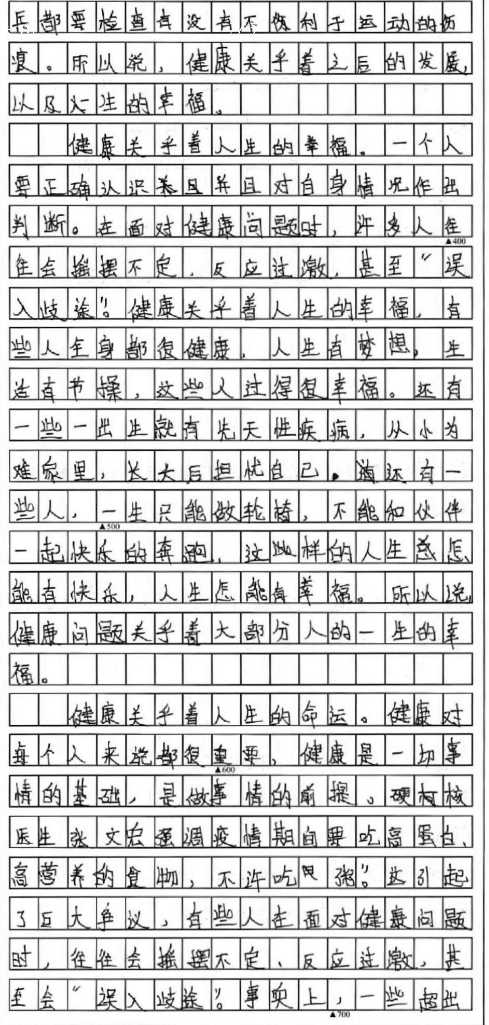 兵都要检查有没有不保利于运动的伤
痕。所以说，健康关乎着之后的发展，
以及一生的幸福。
健康关乎着人生的幸福。一个人
要正确认识并且对自身情况作出
判断。在面对健康问题时，许多人往
▲400
往会摇摆不定，反应过激，甚至“误
入歧途”。健康关乎着人生的幸福，有
些人全身都很健康，人生有梦想，生
活有节操，这些人过得很幸福。还有
一些一出生就有先天性疾病，从小为
难家里，长大后担忧自己。还有一
些人，一生只能做轮椅，不能和伙伴
▲500
一起快乐的奔跑，这些样的人生怎
能有快乐，人生怎能有幸福。所以说，
健康问题关乎着大部分人的一生的幸
福。
健康关乎着人生的命运。健康对
每个人来说都很重要，健康是一切事
▲600
情的基础，是做事情的前提。硬核
医生张文宏强调疫情期间要吃高蛋白、
高营养的食物，不许吃粥”。这引起
了巨大争议，有些人在面对健康问题
时，往往会摇摆不定、反应过激，甚
至会“误入歧途”。事实上，一些超出
▲700